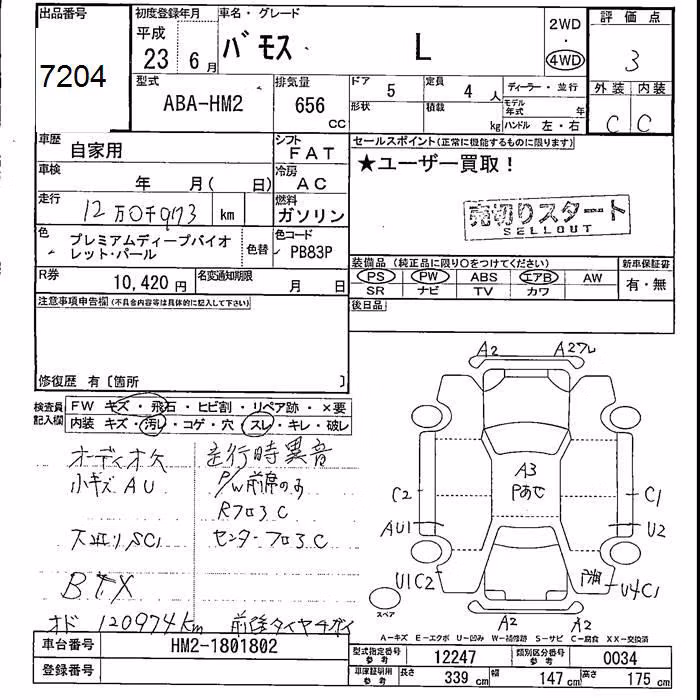 出品番号
7204
初度登録年月
平成
23年 6月
車名・グレード
バモス L
2WD
・
4WD
評価点
3
外装 内装
C C
型式
ABA-HM2
排気量
656
CC
ドア 5
定員 4人
ディーラー・並行
形状
積載
kg
モデル年式 年
ハンドル 左・右
車歴
自家用
シフト
FAT
車検
年 月( 日)
冷房
AC
走行
12万0千973 km
燃料
ガソリン
色
プレミアムディープバイオ
レット・パール
色替
色コード
PB83P
R券
10,420円
名変通知期限
月 日
セールスポイント(正常に機能するものに限ります)
★ユーザー買取！
売切りスタート
SELLOUT
装備品(純正品に限り○をつけてください)
PS PW ABS エアB AW
SR ナビ TV カワ
新車保証書
有・無
後日品
注意事項申告欄(不具合内容等は具体的に記入して下さい)
修復歴 有〔箇所 〕
検査員
記入欄
FW キズ・飛石・ヒビ割・リペア跡・×要
内装 キズ・汚レ・コゲ・穴・スレ・キレ・破レ
オーディオ欠 走行時異音
小キズAU P/W前席のみ
RフロアC
下廻りSC1 センターフロアC
BTX
オド 120974km 前後タイヤチガイ
A2 A2ワレ
A3
Pあせ
C2 C1
AU1 U2
U1C2 U4C1
スペア
A2 A2
A－キズ E－エクボ U－凹み W－補修跡 S－サビ C－腐食 XX－交換済
車台番号 HM2-1801802
登録番号
型式指定番号
参考
12247
類別区分番号
参考
0034
車庫証明用
参考
長さ 339 cm 幅 147 cm 高さ 175 cm